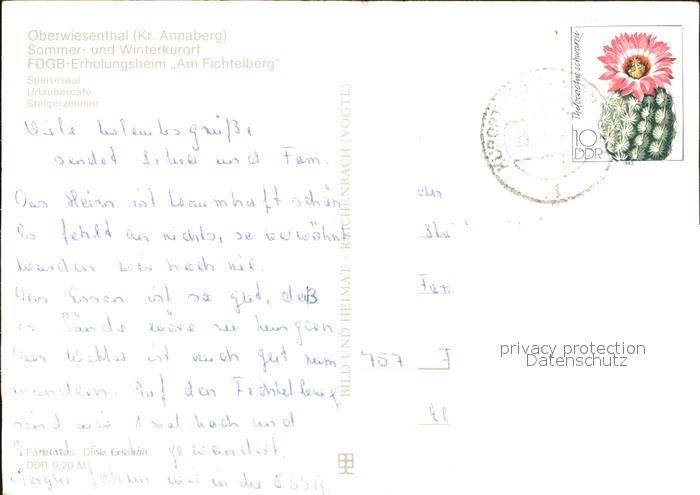 Oberwiesenthal (Kr. Annaberg)
Sommer- und Winterkurort
FDGB-Erholungsheim „Am Fichtelberg"
Speisesaal
Urlaubercafé
Steigerzimmer
Viele Urlaubsgrüße
sendet und Fam.
Das Heim ist traumhaft schön
Es fehlt an nichts, so verwöhnt
wurden wir noch nie.
Das Essen ist so gut, daß
es Sünde wäre zu hungern
Das Wetter ist auch gut zum
wandern. Auf den Fichtelberg
sind wir 1 mal hoch und
gewandert.
Morgen fahren wir in die ČSSR.
DDR 0,20 M
BILD UND HEIMAT · REICHENBACH (VOGTL)
Thelocactus schwarzii
10
DDR
1983
957
privacy protection
Datenschutz